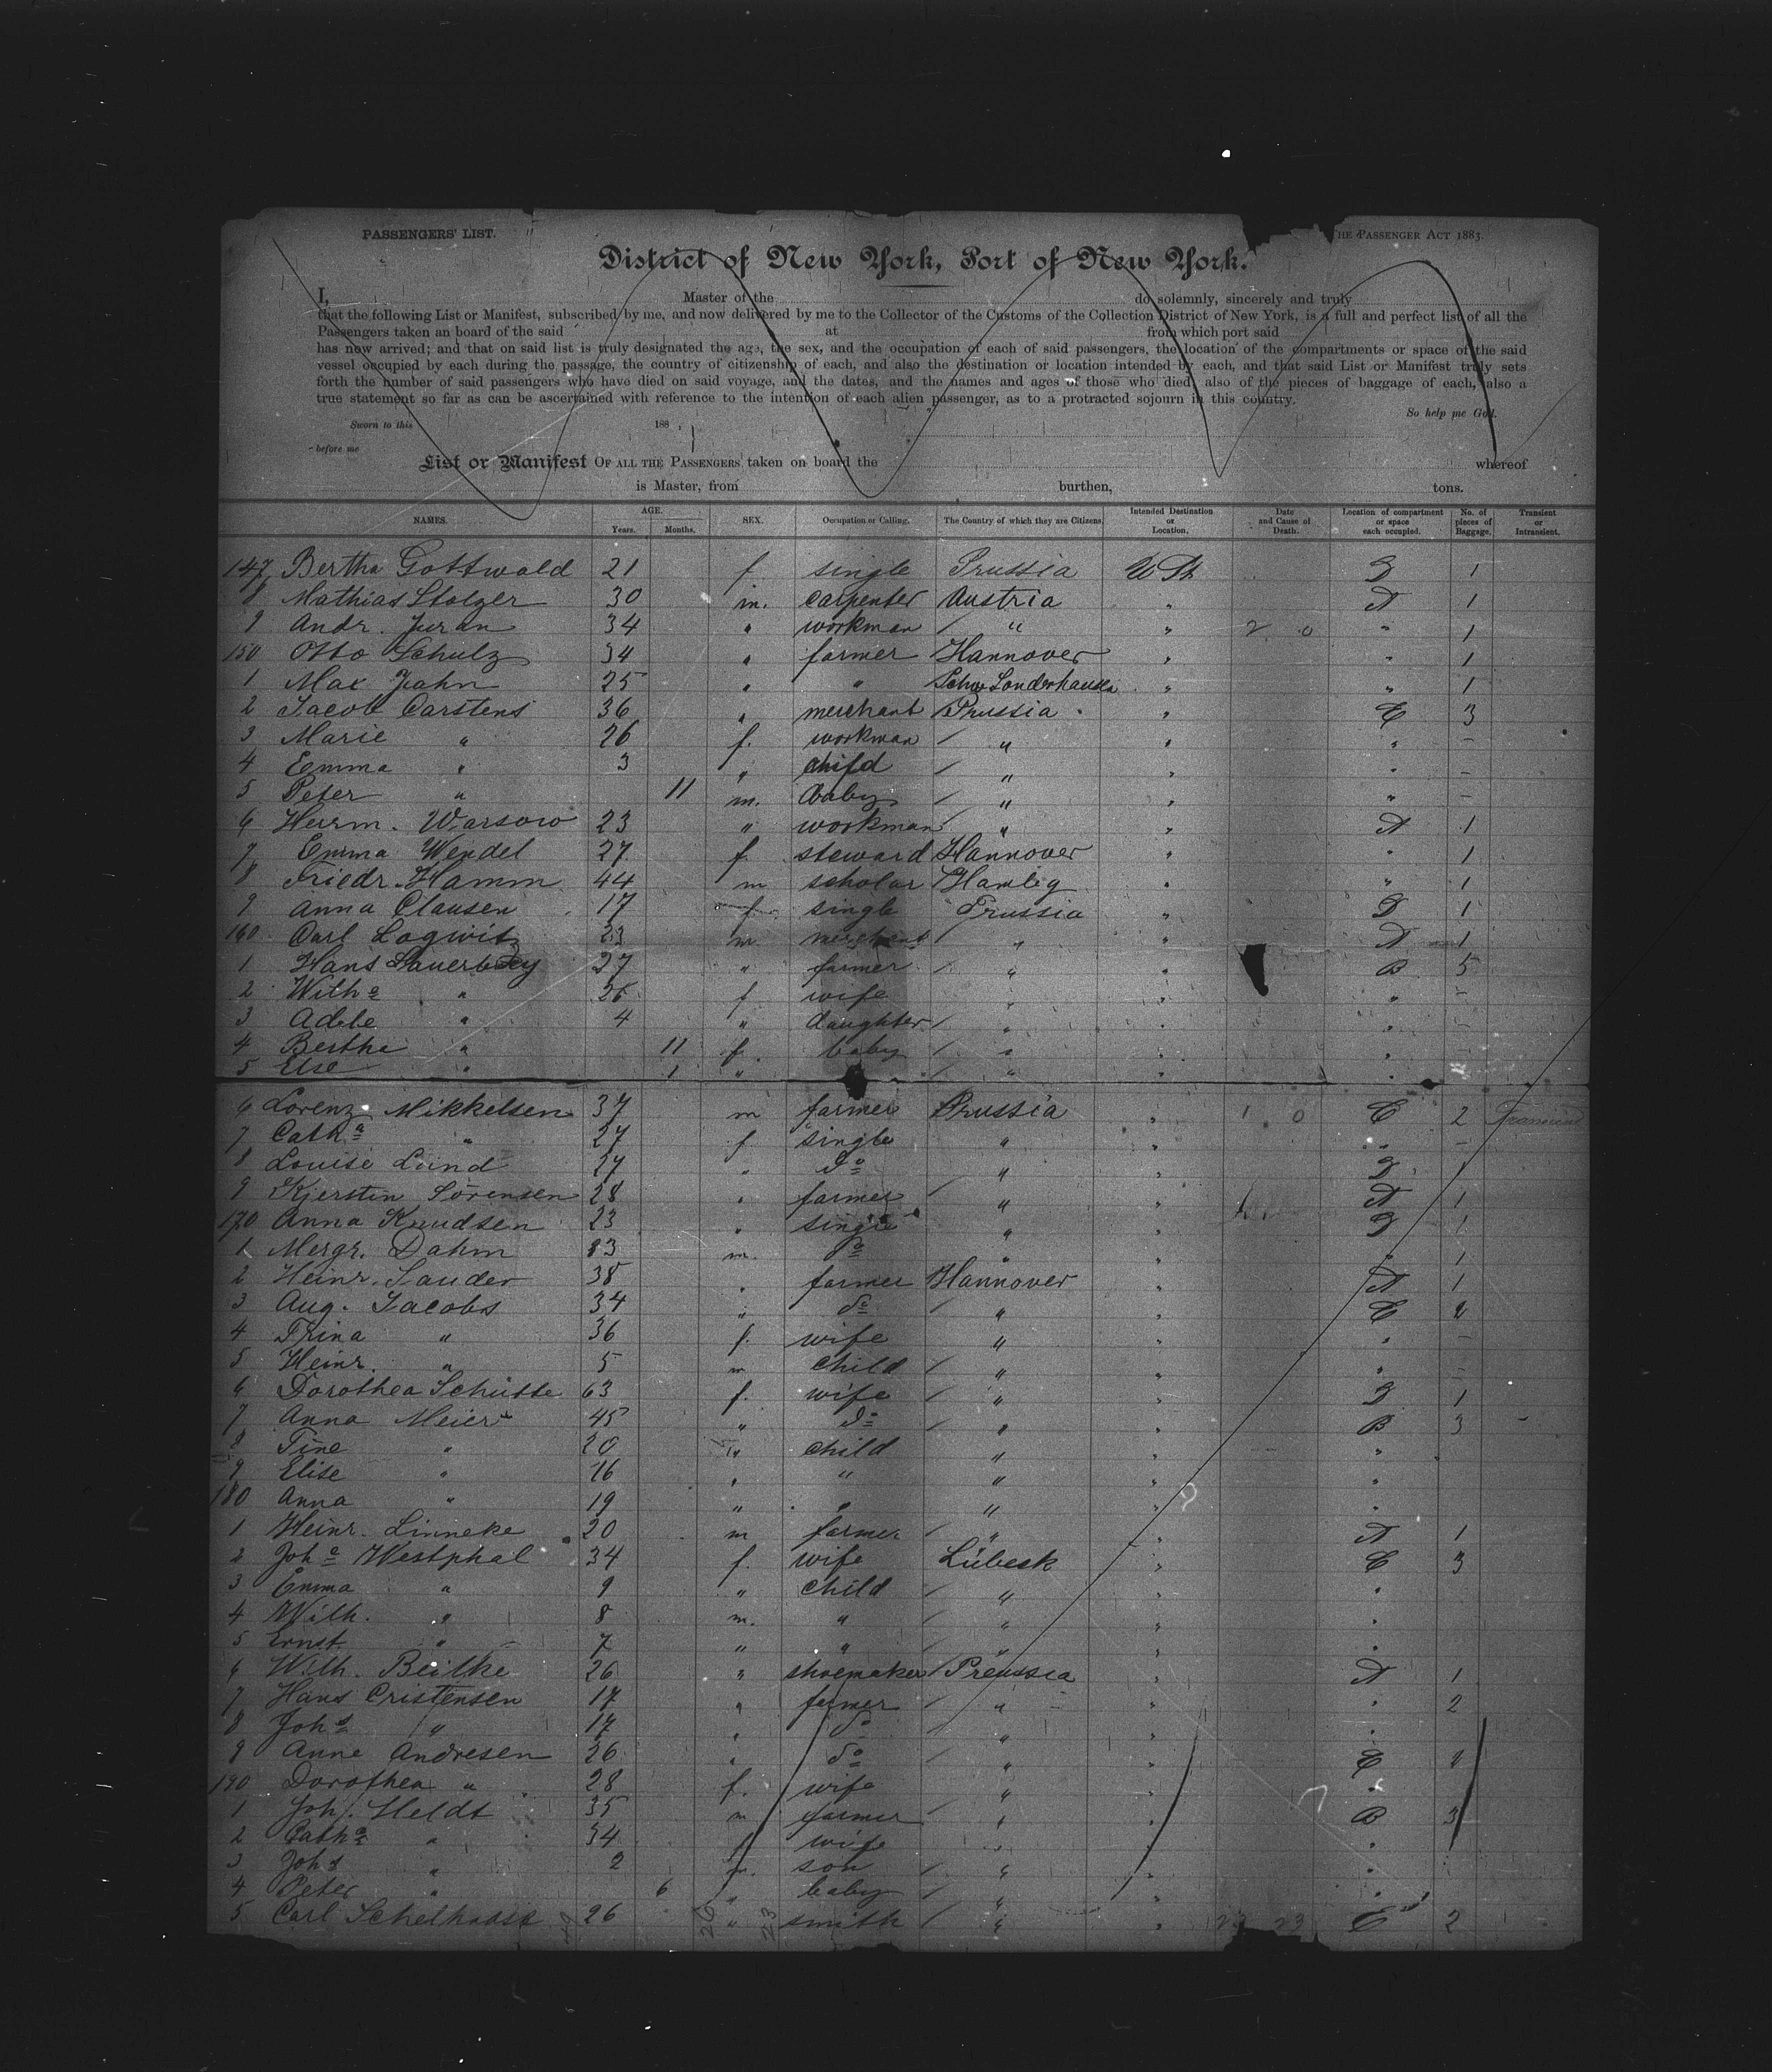 PASSENGERS' LIST.
HE PASSENGER ACT 1883.
District of New York, Port of New York.
I, Master of the do solemnly, sincerely and truly
that the following List or Manifest, subscribed by me, and now delivered by me to the Collector of the Customs of the Collection District of New York, is a full and perfect list of all the
Passengers taken an board of the said at from which port said
has now arrived; and that on said list is truly designated the age, the sex, and the occupation of each of said passengers, the location of the compartments or space of the said
vessel occupied by each during the passage, the country of citizenship of each, and also the destination or location intended by each, and that said List or Manifest truly sets
forth the number of said passengers who have died on said voyage, and the dates, and the names and ages of those who died, also of the pieces of baggage of each, also a
true statement so far as can be ascertained with reference to the intention of each alien passenger, as to a protracted sojourn in this country.
So help me God.
Sworn to this 188
before me
List or Manifest OF ALL THE PASSENGERS taken on board the whereof
is Master, from burthen, tons.
NAMES. AGE. Years. Months. SEX. Occupation or Calling. The Country of which they are Citizens. Intended Destination or Location. Date and Cause of Death. Location of compartment or space each occupied. No. of pieces of Baggage. Transient or Intransient.
147 Bertha Gottwald 21 f. single Prussia 1
8 Mathias Stolzer 30 m. carpenter Austria " A 1
9 Andr. Juran 34 " workman " " 2 0 " 1
150 Otto Schulz 34 " farmer Hannover " " 1
1 Max Jahn 25 " " Schw Sonderhausen " " 1
2 Jacob Carstens 36 " merchant Prussia " C 3
3 Marie " 26 f. workman " " " –
4 Emma " 3 " child " " " –
5 Peter " 11 m. baby " " " –
6 Herrm. Warsow 23 " workman " " A 1
7 Emma Wendel 27 f. steward Hannover " " 1
8 Friedr. Hamm 44 m scholar Hambg " " 1
9 Anna Clausen 17 f. single Prussia " D 1
160 Carl Logwitz 23 m merchant " " A 1
1 Hans Sauerbrey 27 " farmer " " B 5
2 Wilh<u>a</u> " 26 f. wife " " " –
3 Adele " 4 " daughter " " " –
4 Bertha " 11 f. baby " " " –
5 Else " 1 " " " "
6 Lorenz Mikkelsen 37 m farmer Prussia " 1 0 C 2
7 Cath<u>a</u> " 27 f. single " " " –
8 Louise Lund 27 " do " " D 1
9 Kjerstin Sörensen 28 " farmer " " A 1
170 Anna Knudsen 23 " single " " D 1
1 Mergr. Dahm 23 m. do " " " 1
2 Heinr. Sander 38 " farmer Hannover " A 1
3 Aug. Jacobs 34 " do " " C 4
4 Trina " 36 f. wife " " " –
5 Heinr. " 5 m child " " " –
6 Dorothea Schütte 63 f. wife " " D 1
7 Anna Meier 45 " do " " B 3
8 Tine " 20 " child " " "
9 Elise " 16 " " " " "
180 Anna " 19 " " " " "
1 Heinr. Linneke 20 m farmer " " A 1
2 Joh<u>a</u> Westphal 34 f. wife Lübeck " C 3
3 Emma " 9 " child " " "
4 Wilh. " 8 m. " " " "
5 Ernst " 7 " " " " "
6 Wilh. Beilke 26 " shoemaker Preussia " A 1
7 Hans Cristensen 17 " farmer " " " 2
8 Joh<u>s</u> " 17 " do " " "
9 Anne Andresen 26 " do " " C 4
190 Dorothea " 28 f. wife " " "
1 Joh. Heldt 35 m farmer " " B 3
2 Cath<u>a</u> " 34 f wife " " "
3 Joh<u>s</u> " 2 m. son " " "
4 Peter " 6 " baby " " "
5 Carl 26 " smith " " C 2